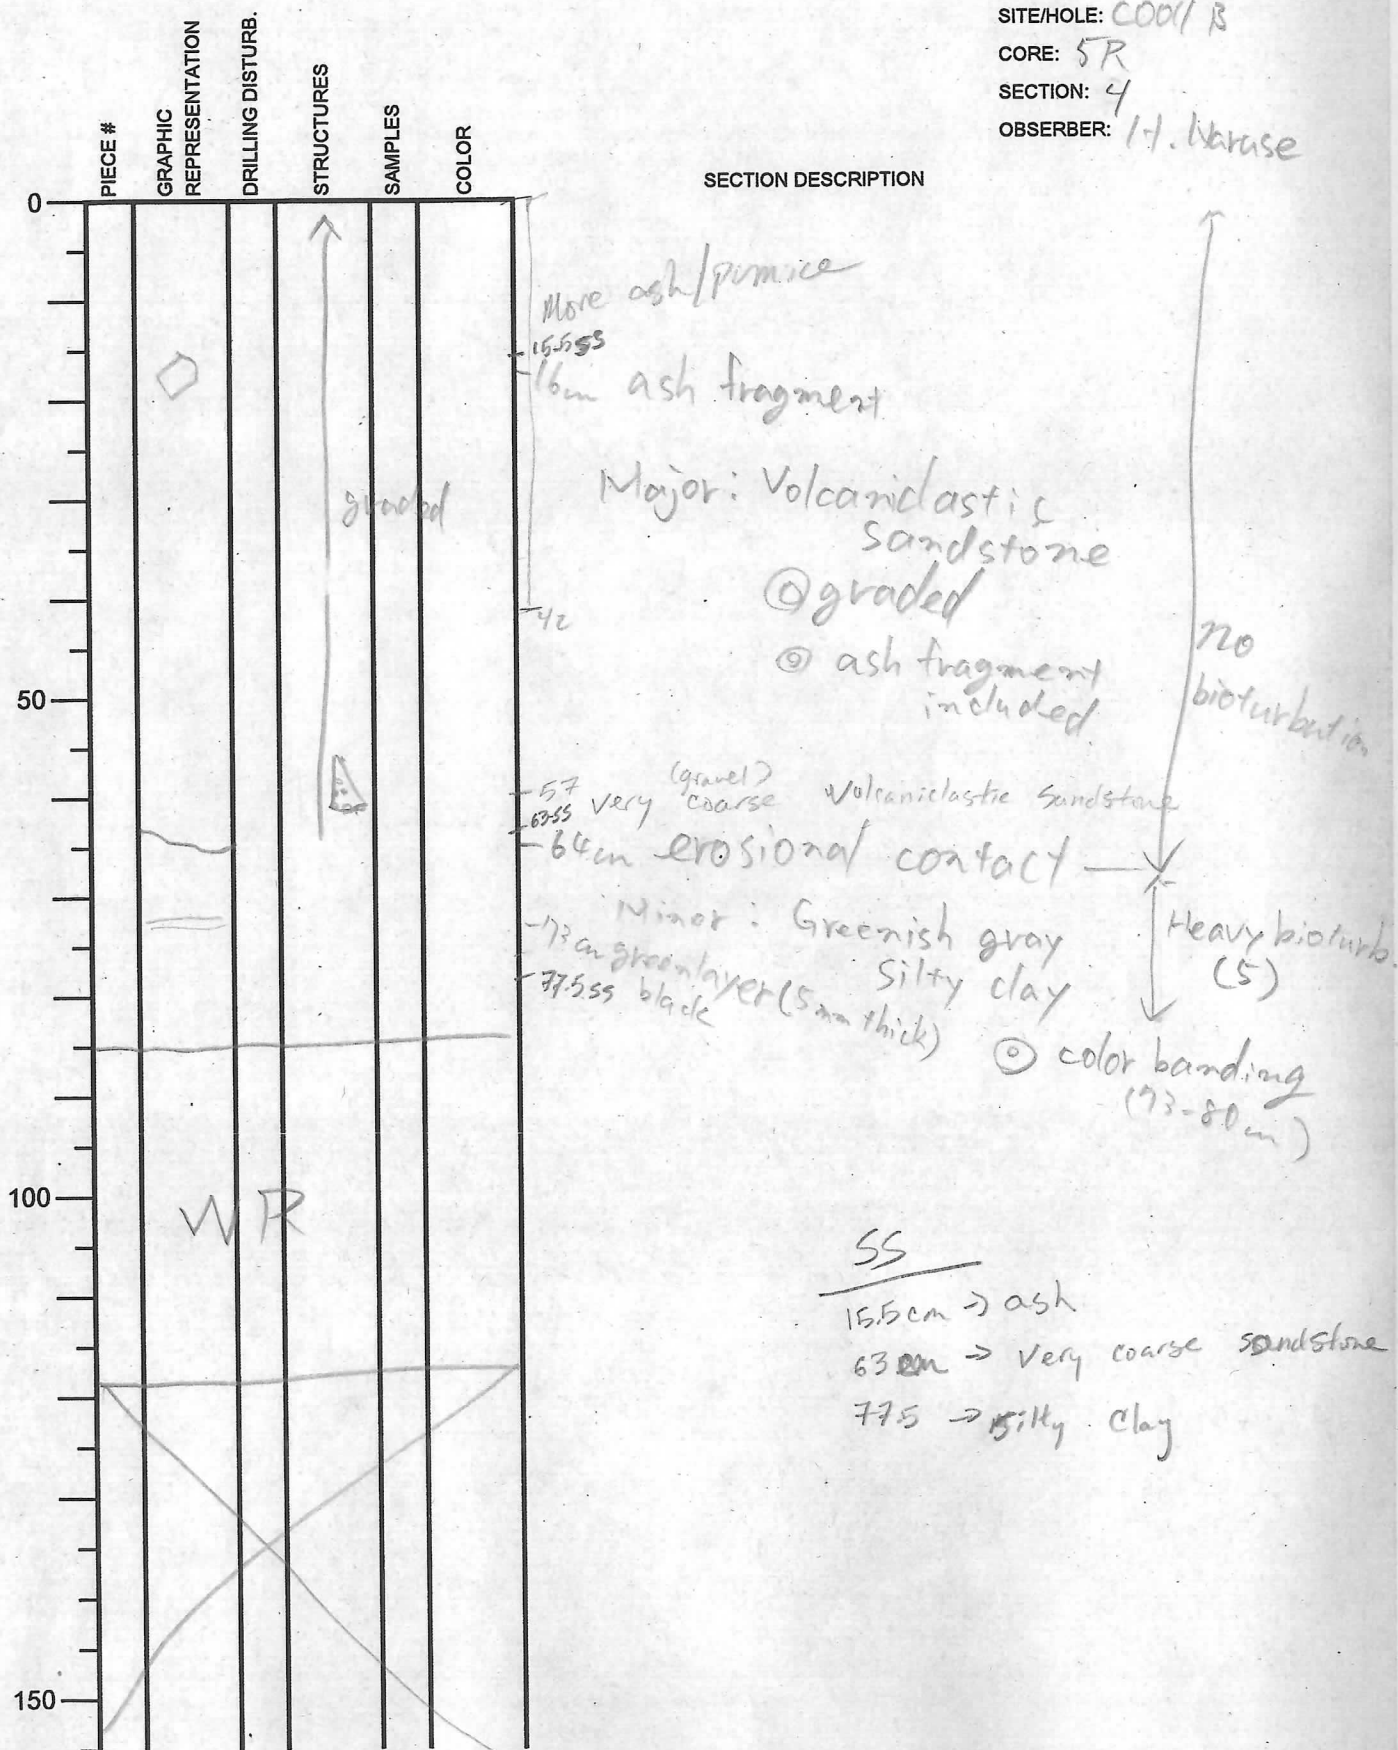 SITE/HOLE: C0011 B
CORE: 5R
SECTION: 4
OBSERBER: H. Naruse
PIECE #
GRAPHIC REPRESENTATION
DRILLING DISTURB.
STRUCTURES
SAMPLES
COLOR
SECTION DESCRIPTION
0
More ash/pumice
15.5 SS
16cm ash fragment
graded
Major: Volcaniclastic
Sandstone
◎ graded
42
◎ ash fragment
included
no
bioturbation
50
57 very (gravel) coarse Volcaniclastic Sandstone
63 SS
64cm erosional contact
Minor: Greenish gray
Silty clay
Heavy bioturb.
(5)
73cm green layer (5mm thick)
77.5 SS black
◎ color banding
(73-80cm)
100
WR
SS
15.5cm → ash
63 cm → Very coarse sandstone
77.5 → Silty Clay
150